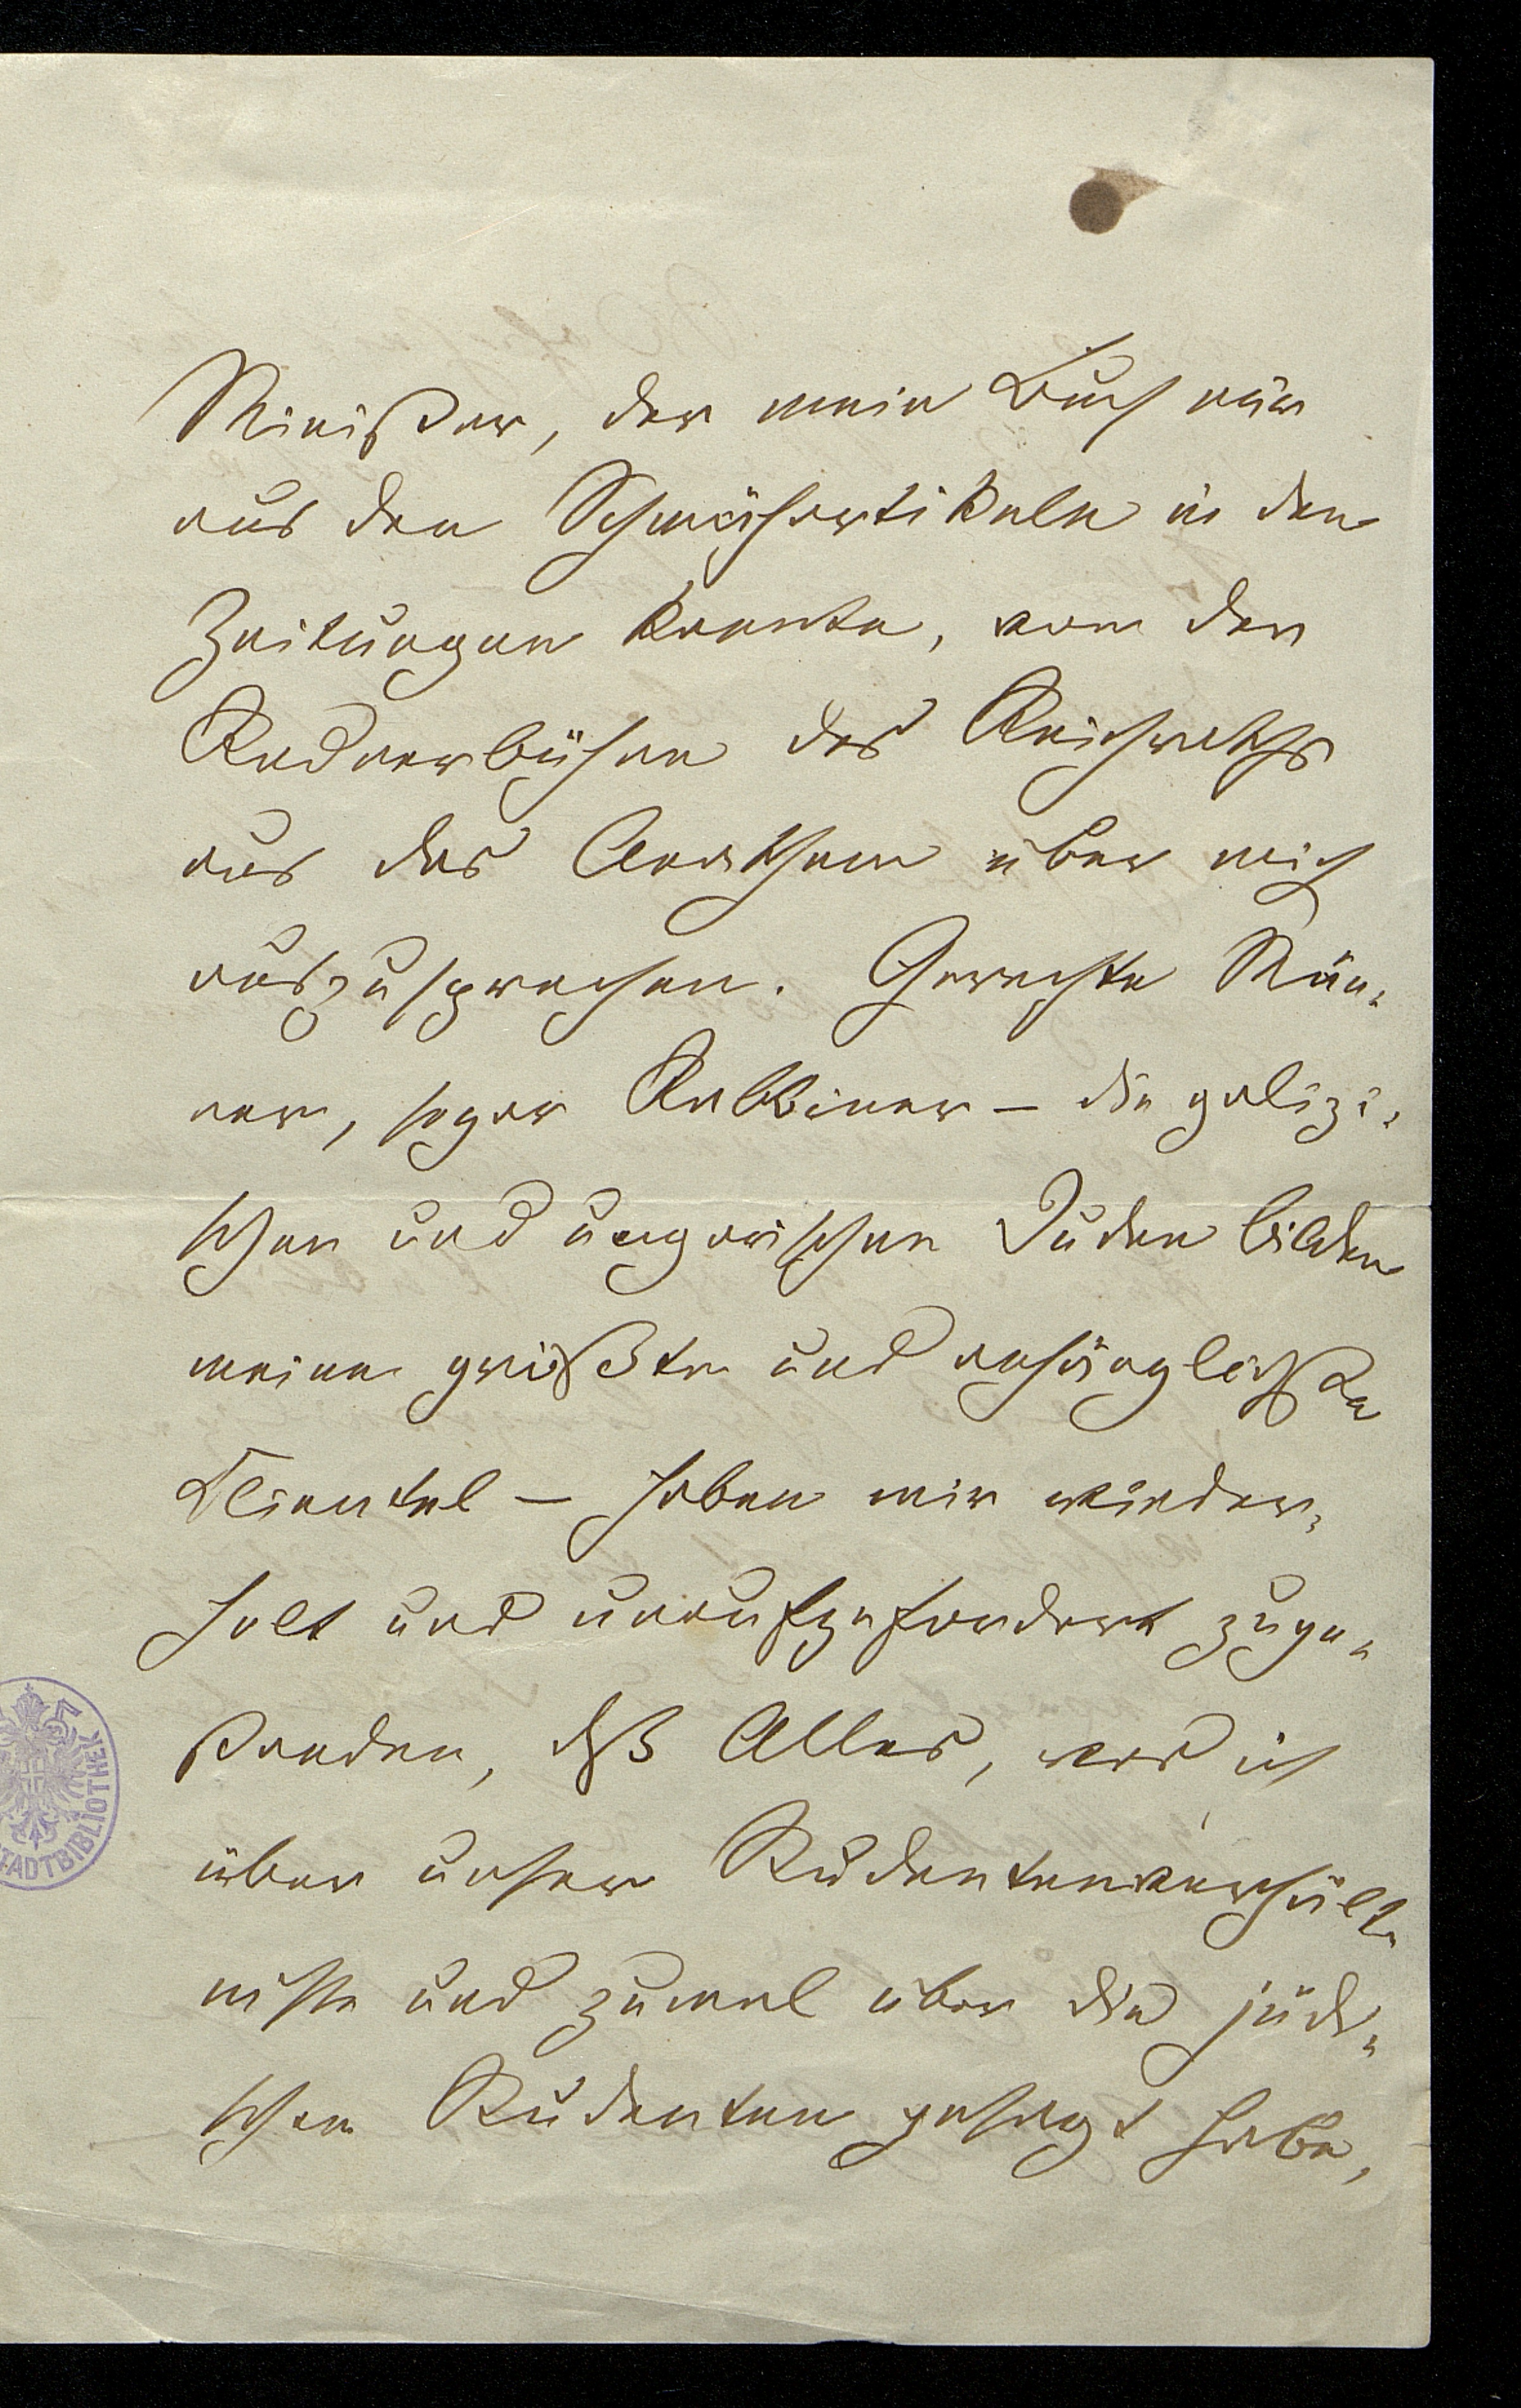 Minister, der mein Buch nur
aus den Schmähartikeln in den
Zeitungen kannte, von der
Rednerbühne des Reichsraths
aus das Anathem über mich
auszusprechen. Gerechte Män-
ner, sogar Rabbiner – die galizi-
schen und ungarischen Juden bilden
meine größte und anhänglichste
Clientel – haben mir wieder-
holt und unaufgefordert zuge-
standen, dß Alles, was ich
über unsere Studentenverhält-
nisse und zumal über die jüdi-
schen Studenten gesagt habe,
STADTBIBLIOTHEK